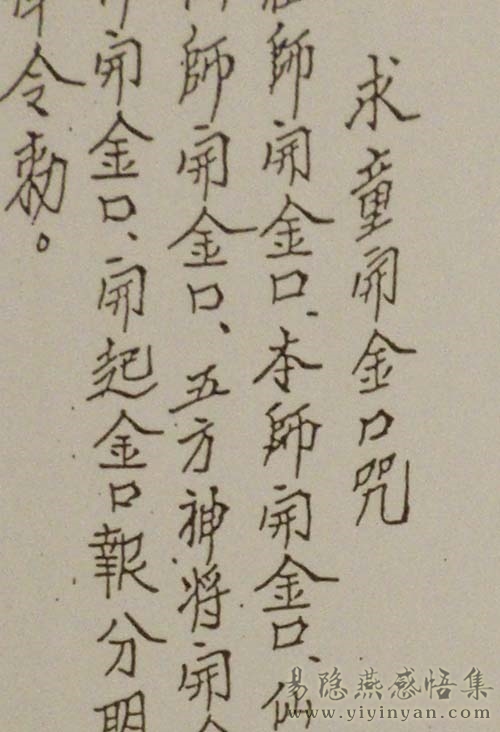 求童開金口咒
師開金口、本師開金口、仙
師開金口、五方神将開金
開金口、開起金口報分明
令勅。
易隐燕感悟集
www.yiyinyan.com